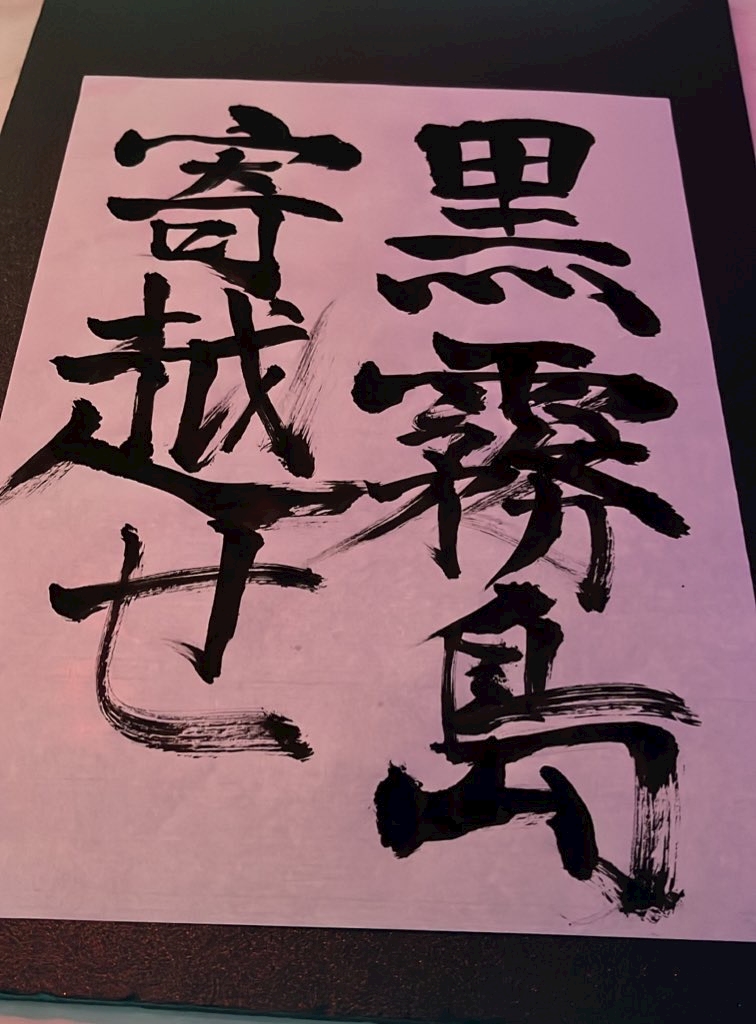 黒霧島
寄越せ